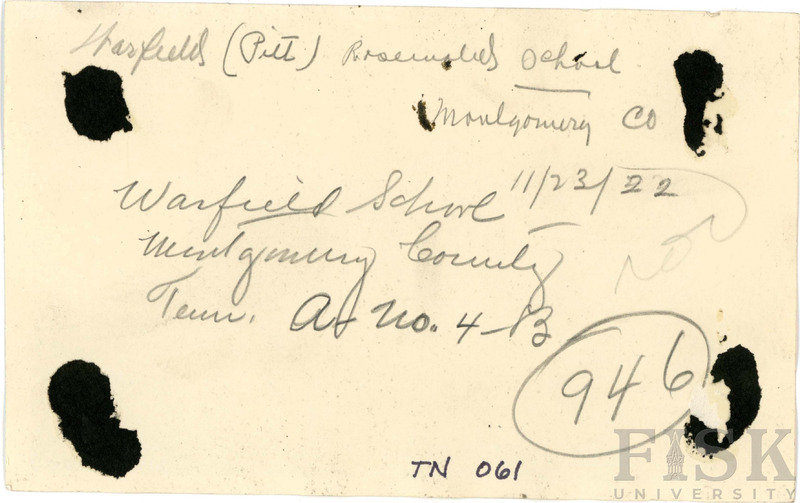 Warfields (Pitt) Rosenwalds School
Montgomery CO
Warfield School 11/23/22
Montgomery County
Tenn. A No. 4-B
946
TN 061
FISK
UNIVERSITY